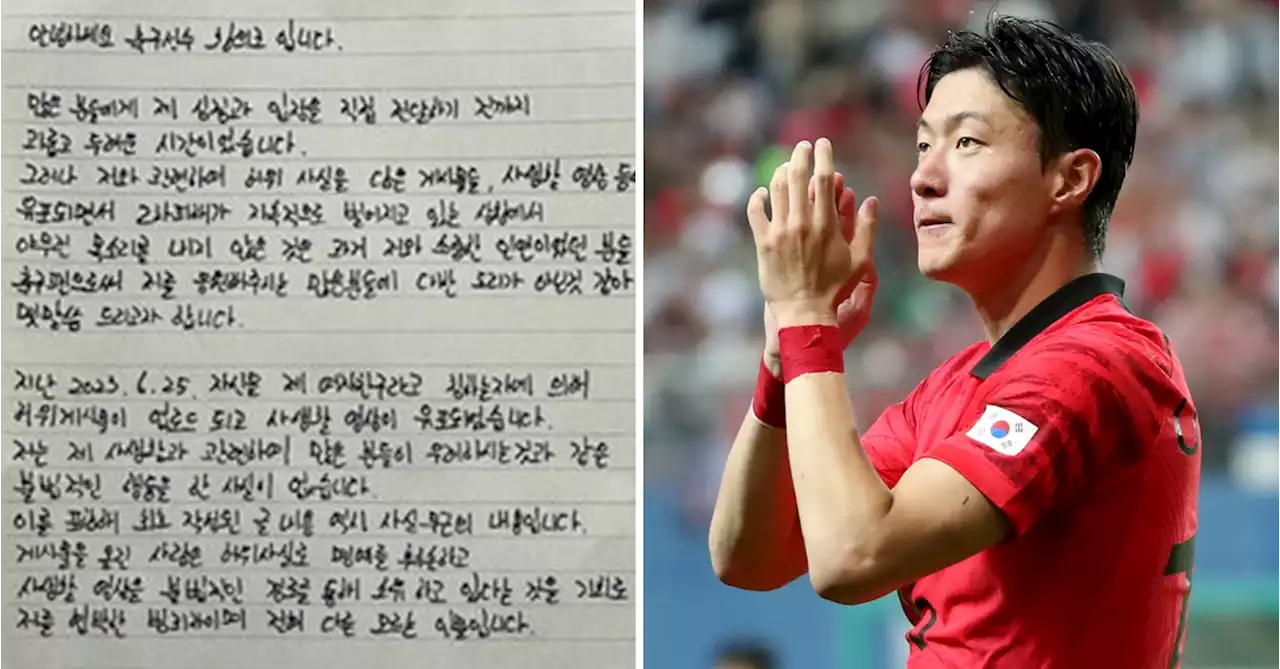 안녕하세요 축구선수 황의조 입니다.
많은 분들에게 제 심정과 입장을 직접 전달하기 것까지
괴롭고 두려운 시간이었습니다.
그러나 저와 관련하여 허위 사실을 담은 게시물들, 사생활 영상 등이
유포되면서 2차피해가 지속적으로 벌어지고 있는 상황에서
아무런 목소리를 내지 않은 것은 과거 저와 소중한 인연이었던 분들
축구팬으로써 저를 응원해주시는 많은분들에 대한 도리가 아닌것 같아
몇말씀 드리고자 합니다.
지난 2023.6.25. 자신을 제 여자친구라고 칭하는자에 의해
허위게시물이 업로드 되고 사생활 영상이 유포되었습니다.
저는 제 사생활과 관련하여 많은 분들이 우려하시는것과 같은
불법적인 행동을 한 사실이 없습니다.
이를 포함해 최초 작성된 글 내용 역시 사실무근의 내용입니다.
게시물을 올린 사람은 허위사실로 명예를 훼손하고
사생활 영상을 불법적인 경로를 통해 소유 하고 있다는 것을 기회로
저를 협박한 범죄자이며 전혀 다른 모르는 이들입니다.